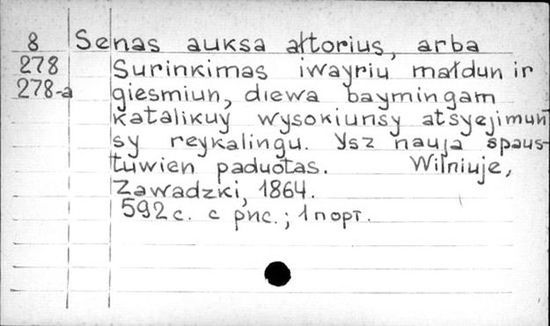 8 Senas auksa ałtorius, arba
278 Surinkimas iwayriu małdun ir
278-a giesmiun, diewa baymingam
katalikuy wysokiunsy atsyejimun
sy reykalingu. Ysz nauja spaus-
tuwien paduotas. Wilniuje,
Zawadzki, 1864.
592 с. с рис.; 1 порт.